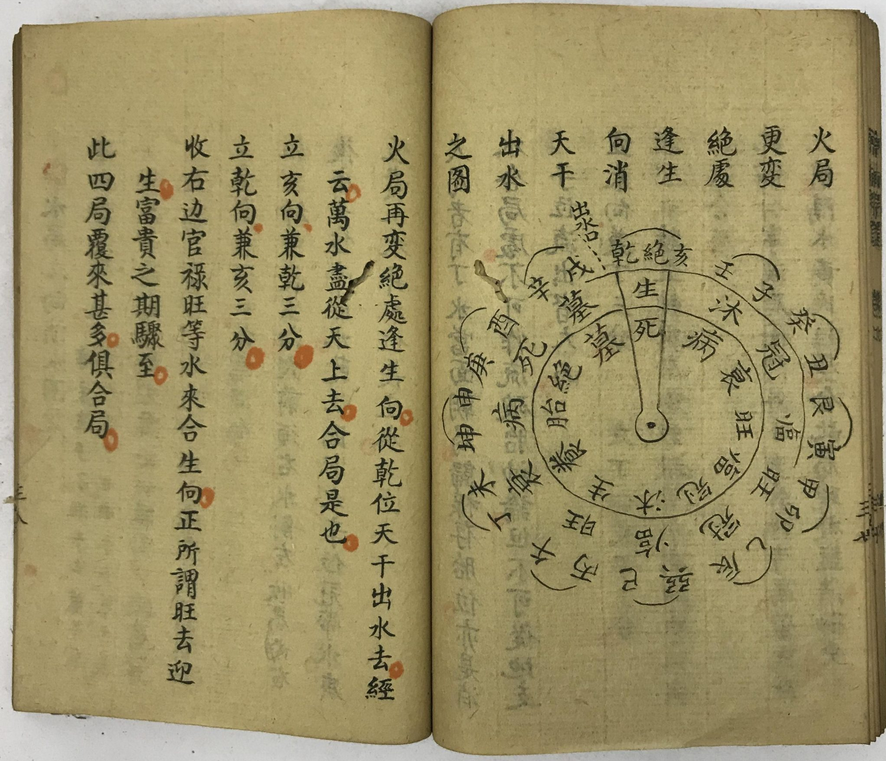 火局
更变
絕處
逢生
向消
天干
出水
之圖
出水口
乾 絕 亥
壬 子
癸 丑
艮 寅
甲 卯
乙 辰
巳
丙 午
丁 未
坤 申
庚 酉
辛 戌
生 沐 冠 临 旺 衰 病 死 墓
死 病 衰 旺 临 冠 沐 生 養 胎 絕 墓
火局再変絕處逢生向從乾位天干出水去經
云萬水盡從天上去合局是也
立亥向兼乾三分
立乾向兼亥三分
收右边官禄旺等水來合生向正所謂旺去迎
生富貴之期驟至
此四局覆來甚多俱合局